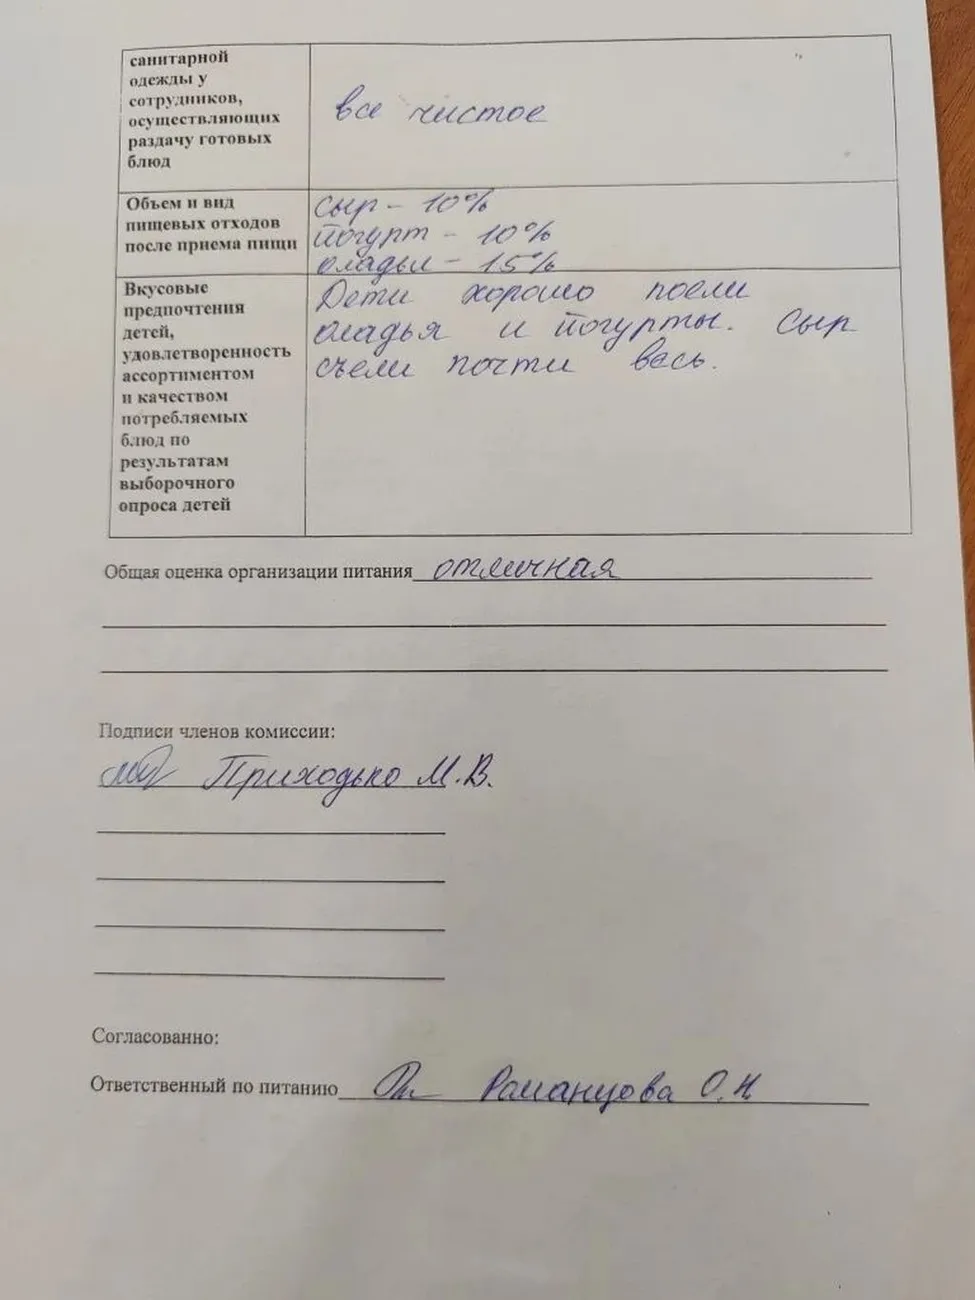 санитарной
одежды у
сотрудников,
осуществляющих
раздачу готовых
блюд
все чистое
Объем и вид
пищевых отходов
после приема пищи
сыр - 10%
йогурт - 10%
оладьи - 15%
Вкусовые
предпочтения
детей,
удовлетворенность
ассортиментом
и качеством
потребляемых
блюд по
результатам
выборочного
опроса детей
Дети хорошо поели
оладья и йогурты. Сыр
съели почти весь.
Общая оценка организации питания отличная
Подписи членов комиссии:
Приходько М.В.
Согласованно:
Ответственный по питанию Романцова О.Н